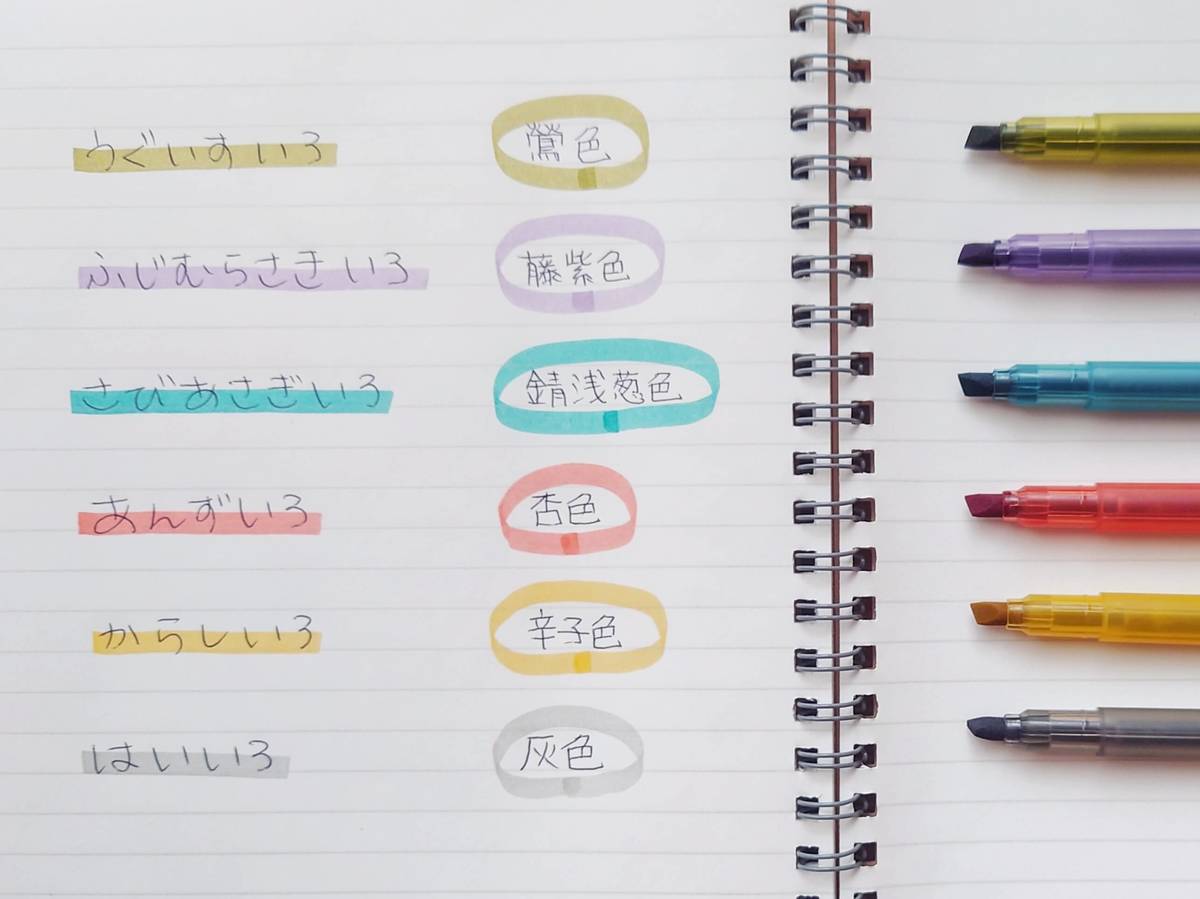 うぐいすいろ 鶯色
ふじむらさきいろ 藤紫色
さびあさぎいろ 錆浅葱色
あんずいろ 杏色
からしいろ 辛子色
はいいろ 灰色